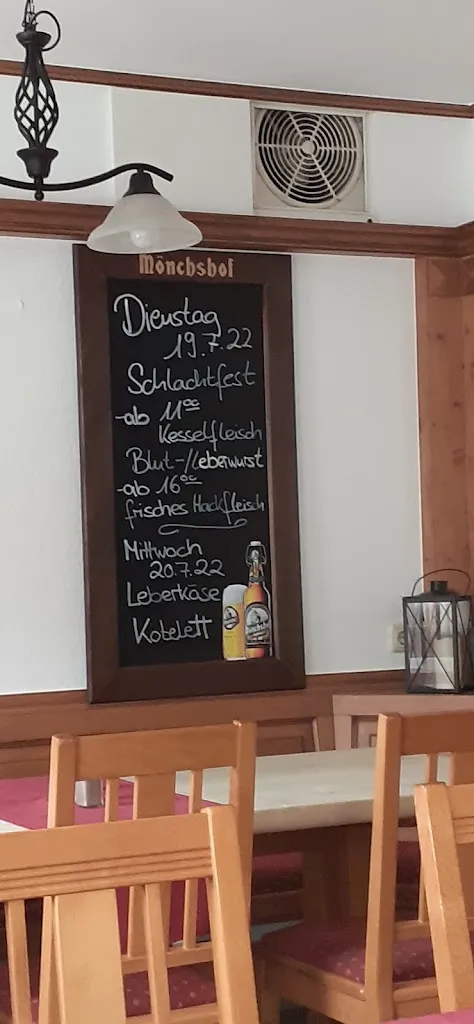 Mönchshof
Dienstag
19.7.22
Schlachtfest
-ab 11⁰⁰
Kesselfleisch
Blut-/Leberwurst
-ab 16⁰⁰
frisches Hackfleisch
Mittwoch
20.7.22
Leberkäse
Kotelett